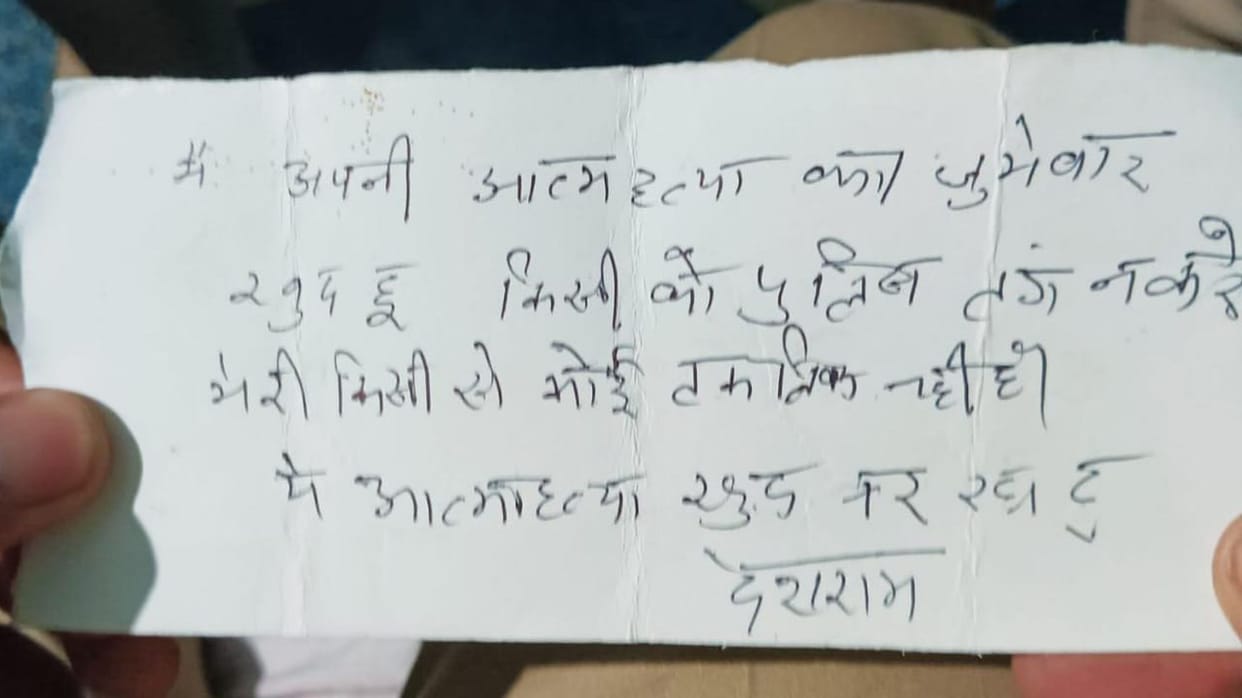 मे अपनी आत्महत्या का जुमेवार
खुद हू किसी को पुलिस तंग न करे
मेरी किसी से कोई तकलिफ नही है
मे आत्माहत्या खुद कर रहा हु
देशराम